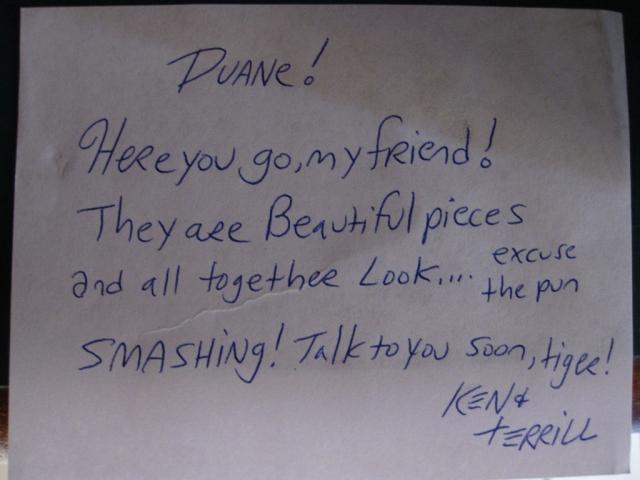 DUANE!
Here you go, my friend!
They are Beautiful pieces
and all together Look.... excuse
the pun
SMASHING! Talk to you soon, tiger!
KEN &
TERRILL